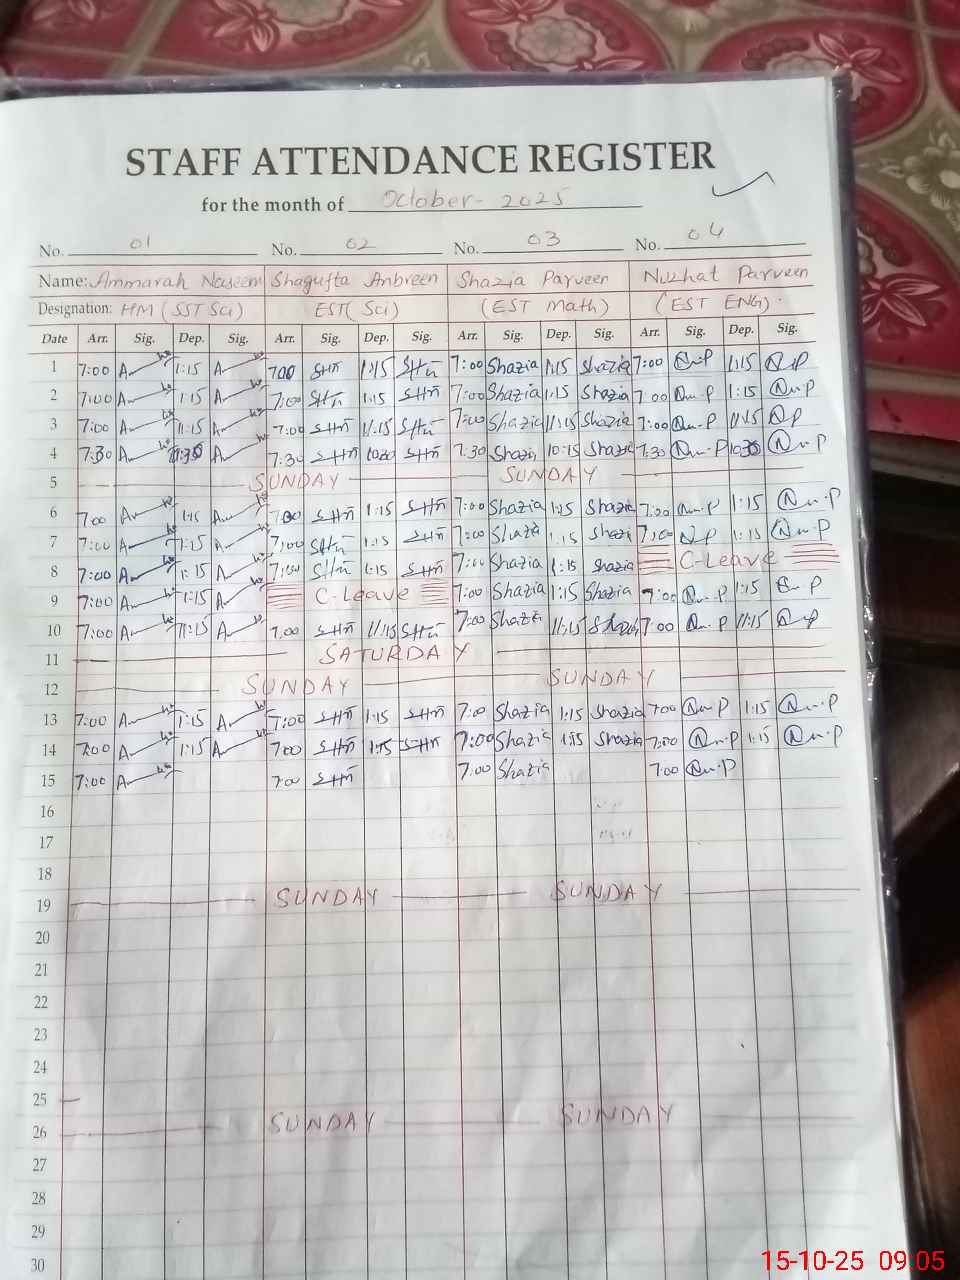 STAFF ATTENDANCE REGISTER
for the month of October - 2025
No. 01 No. 02 No. 03 No. 04
Name: Ammarah Naseem Shagufta Anbreen Shazia Parveen Nuzhat Parveen
Designation: HM (SST Sci) EST (Sci) (EST Math) (EST ENG)
Date Arr. Sig. Dep. Sig. Arr. Sig. Dep. Sig. Arr. Sig. Dep. Sig. Arr. Sig. Dep. Sig.
1 7:00 1:15 7:00 1:15 7:00 Shazia 1:15 Shazia 7:00 1:15
2 7:00 1:15 7:00 1:15 7:00 Shazia 1:15 Shazia 7:00 1:15
3 7:00 11:15 7:00 11:15 7:00 Shazia 11:15 Shazia 7:00 11:15
4 7:30 7:30 7:30 Shazia 10:15 Shazia 7:30 10:30
5 SUNDAY SUNDAY
6 7:00 1:15 7:00 1:15 7:00 Shazia 1:15 Shazia 7:00 1:15
7 7:00 1:15 7:00 1:15 7:00 Shazia 1:15 Shazia 7:00 1:15
8 7:00 1:15 7:00 1:15 7:00 Shazia 1:15 Shazia C-Leave
9 7:00 1:15 C-Leave 7:00 Shazia 1:15 Shazia 7:00 1:15
10 7:00 11:15 7:00 11:15 7:00 Shazia 11:15 Shazia 7:00 11:15
11 SATURDAY
12 SUNDAY SUNDAY
13 7:00 1:15 7:00 1:15 7:00 Shazia 1:15 Shazia 7:00 1:15
14 7:00 1:15 7:00 1:15 7:00 Shazia 1:15 Shazia 7:00 1:15
15 7:00 7:00 7:00 Shazia 7:00
16
17
18
19 SUNDAY SUNDAY
20
21
22
23
24
25
26 SUNDAY SUNDAY
27
28
29
30
15-10-25 09:05